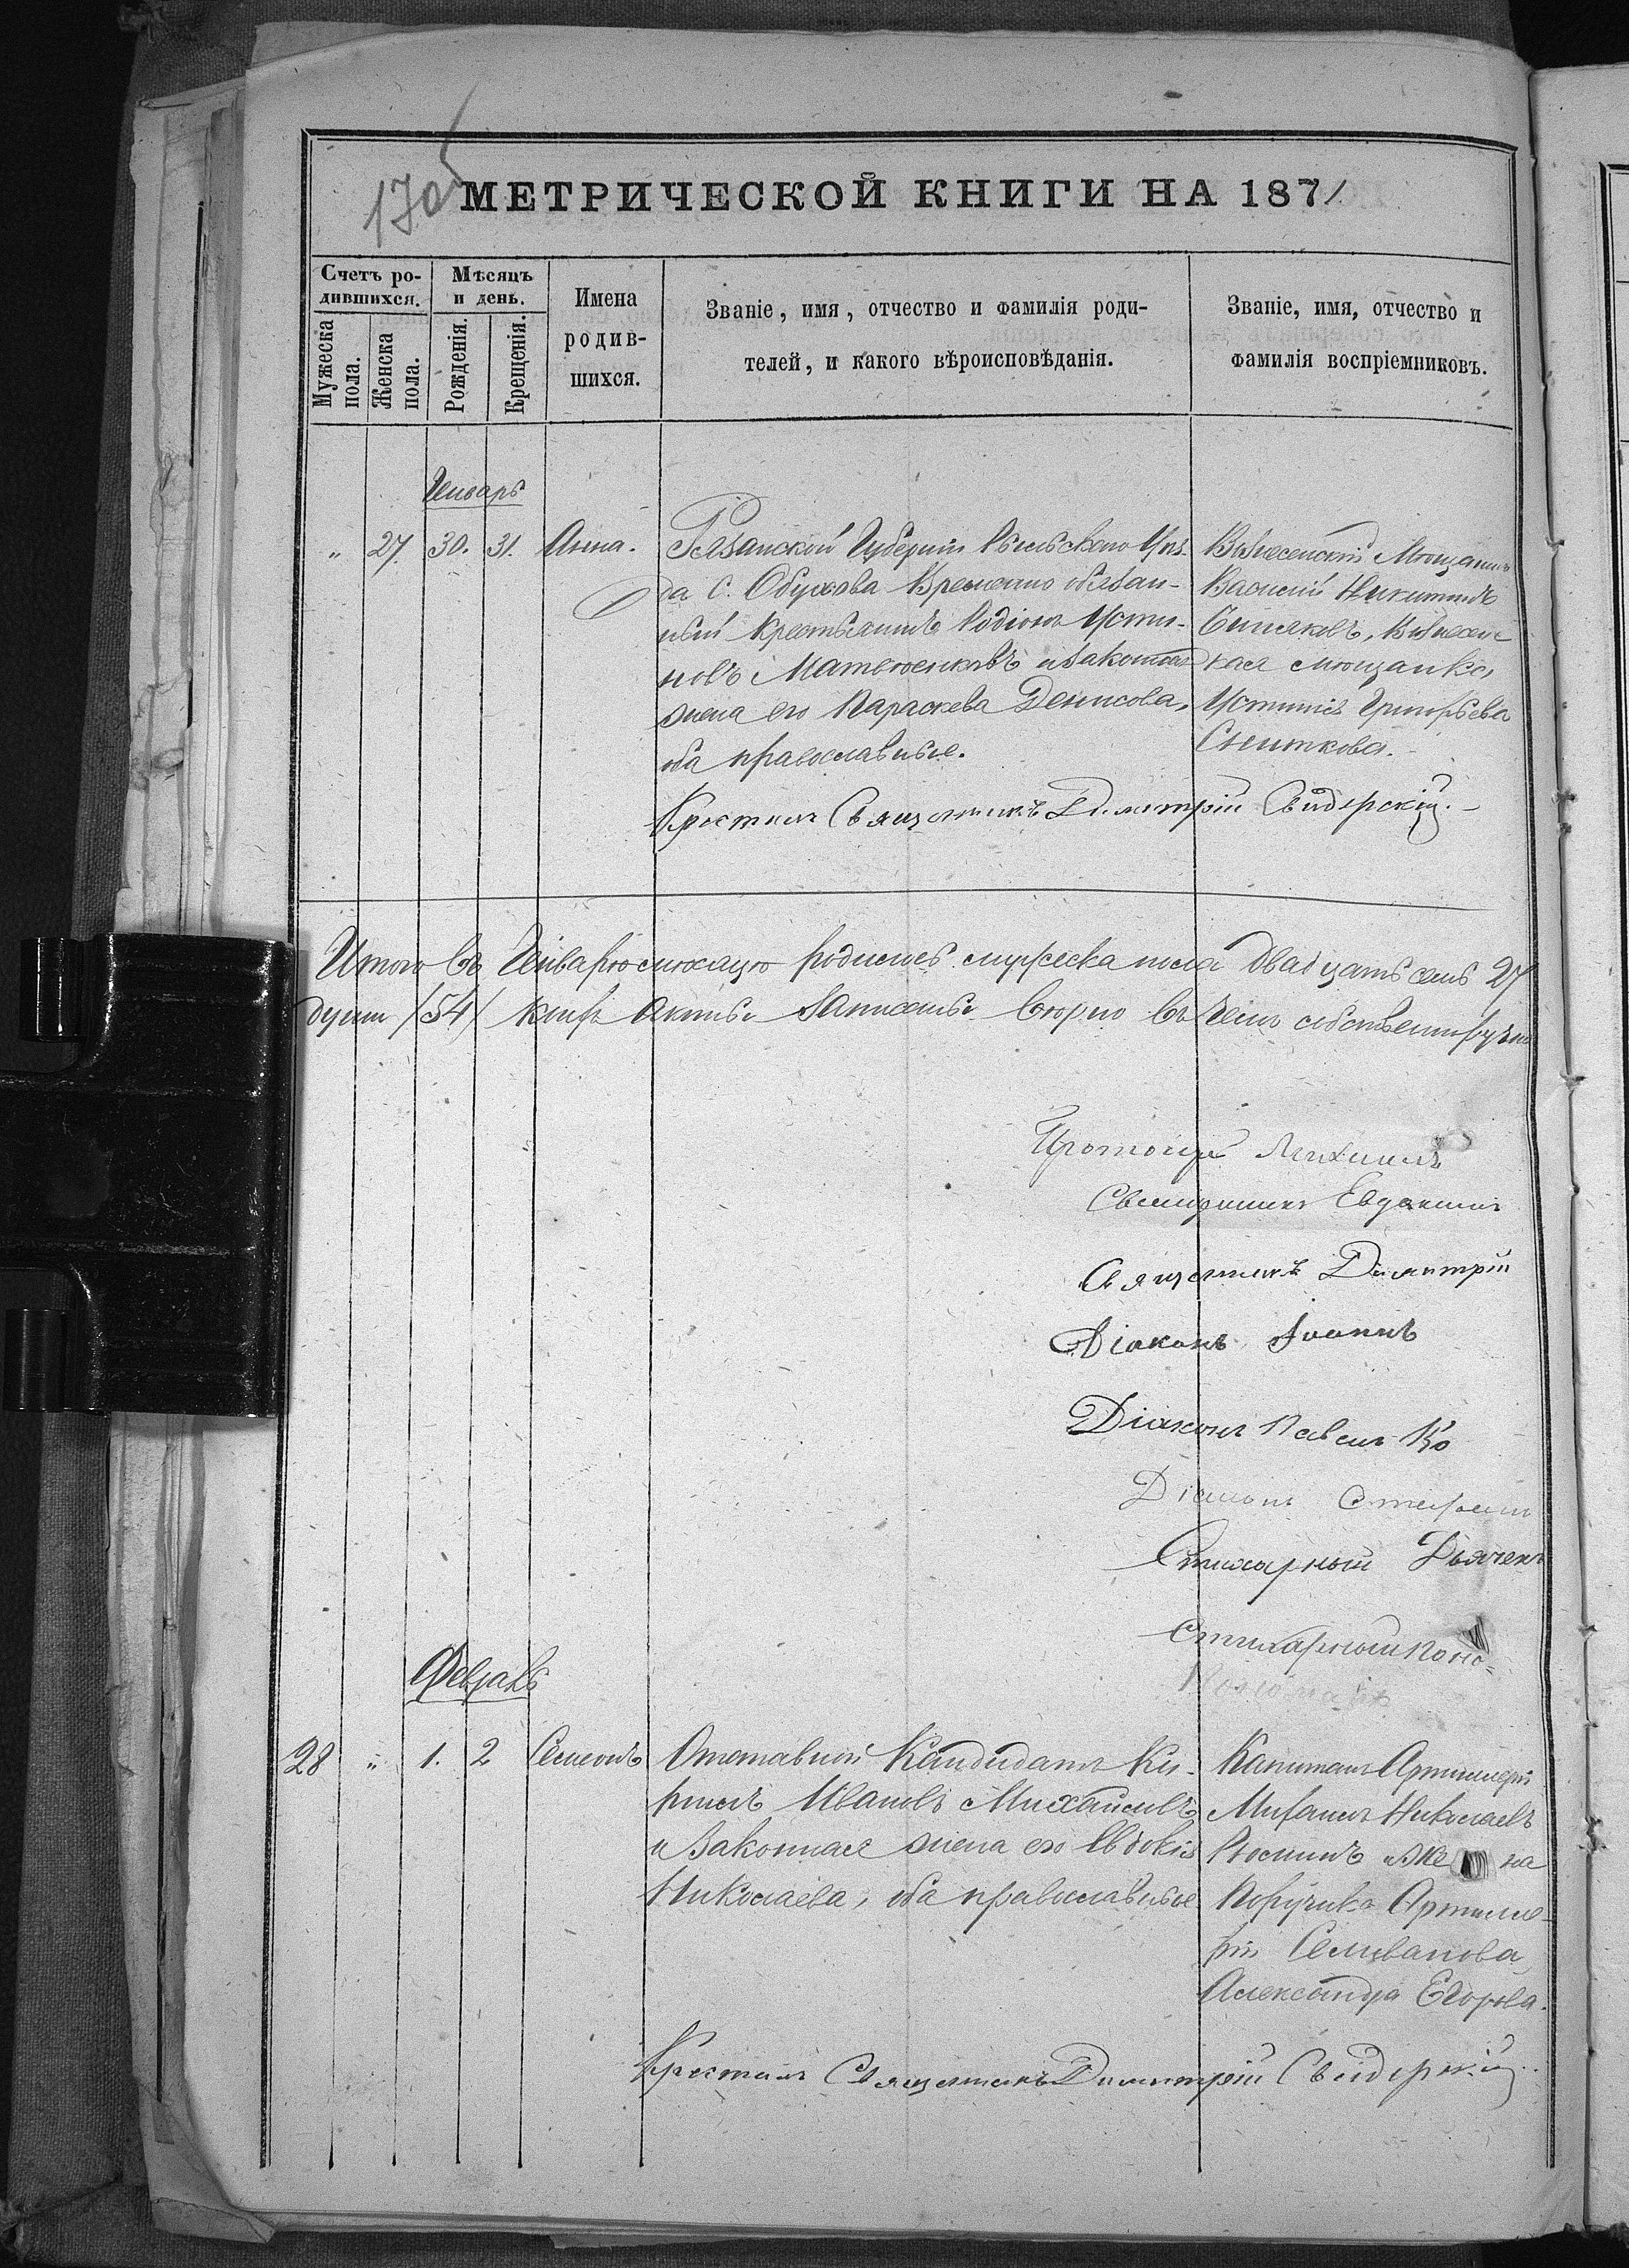 170
МЕТРИЧЕСКОЙ КНИГИ НА 1871
Счетъ ро-
дившихся.
Мужеска
пола.
Женска
пола.
Мѣсяцъ
и день.
Рожденія.
Крещенія.
Имена
родив-
шихся.
Званіе, имя, отчество и фамилія роди-
телей, и какого вѣроисповѣданія.
Званіе, имя, отчество и
фамилія воспріемниковъ.
Генварь
" 27. 30. 31. Анна.
Рязанской Губерніи Уѣз-
да С. Обухова Временно обязан-
ный крестьянинъ Родіонъ Усти-
новъ Матвюенковъ и законная
жена его Параскева Денисова,
оба православные.
Вознесенскій Мѣщанинъ
Василій Никитинъ
Вознесенс
кая мѣщанка
Устинія Григорьева
Снѣткова.
Крестилъ Священникъ Димитрій Свидерскій.
Итого въ Генварѣ мѣсяцѣ родилось мужеска пола двадцать семь 27
душъ (54) акты записаны вѣрно въ чемъ собственноручно
Протоіерей Михаилъ
Священникъ Евдокимъ
Священникъ Димитрій
Діаконъ Іоаннъ
Діаконъ Павелъ Ко
Діаконъ Стефанъ
Стихарный Дьячекъ
Стихарный Поно-
Пономарь
Февраль
28 " 1. 2 Симеонъ
Отставной Кандидатъ Ки-
рилъ Ивановъ Михайловъ
и законная жена его Евдокія
Николаева, оба православные
Капитанъ Артиллеріи
Михаилъ Николаевъ
и жена
Поручика Артилле-
ріи Селиванова
Александра Егорова.
Крестилъ Священникъ Димитрій Свидерскій.